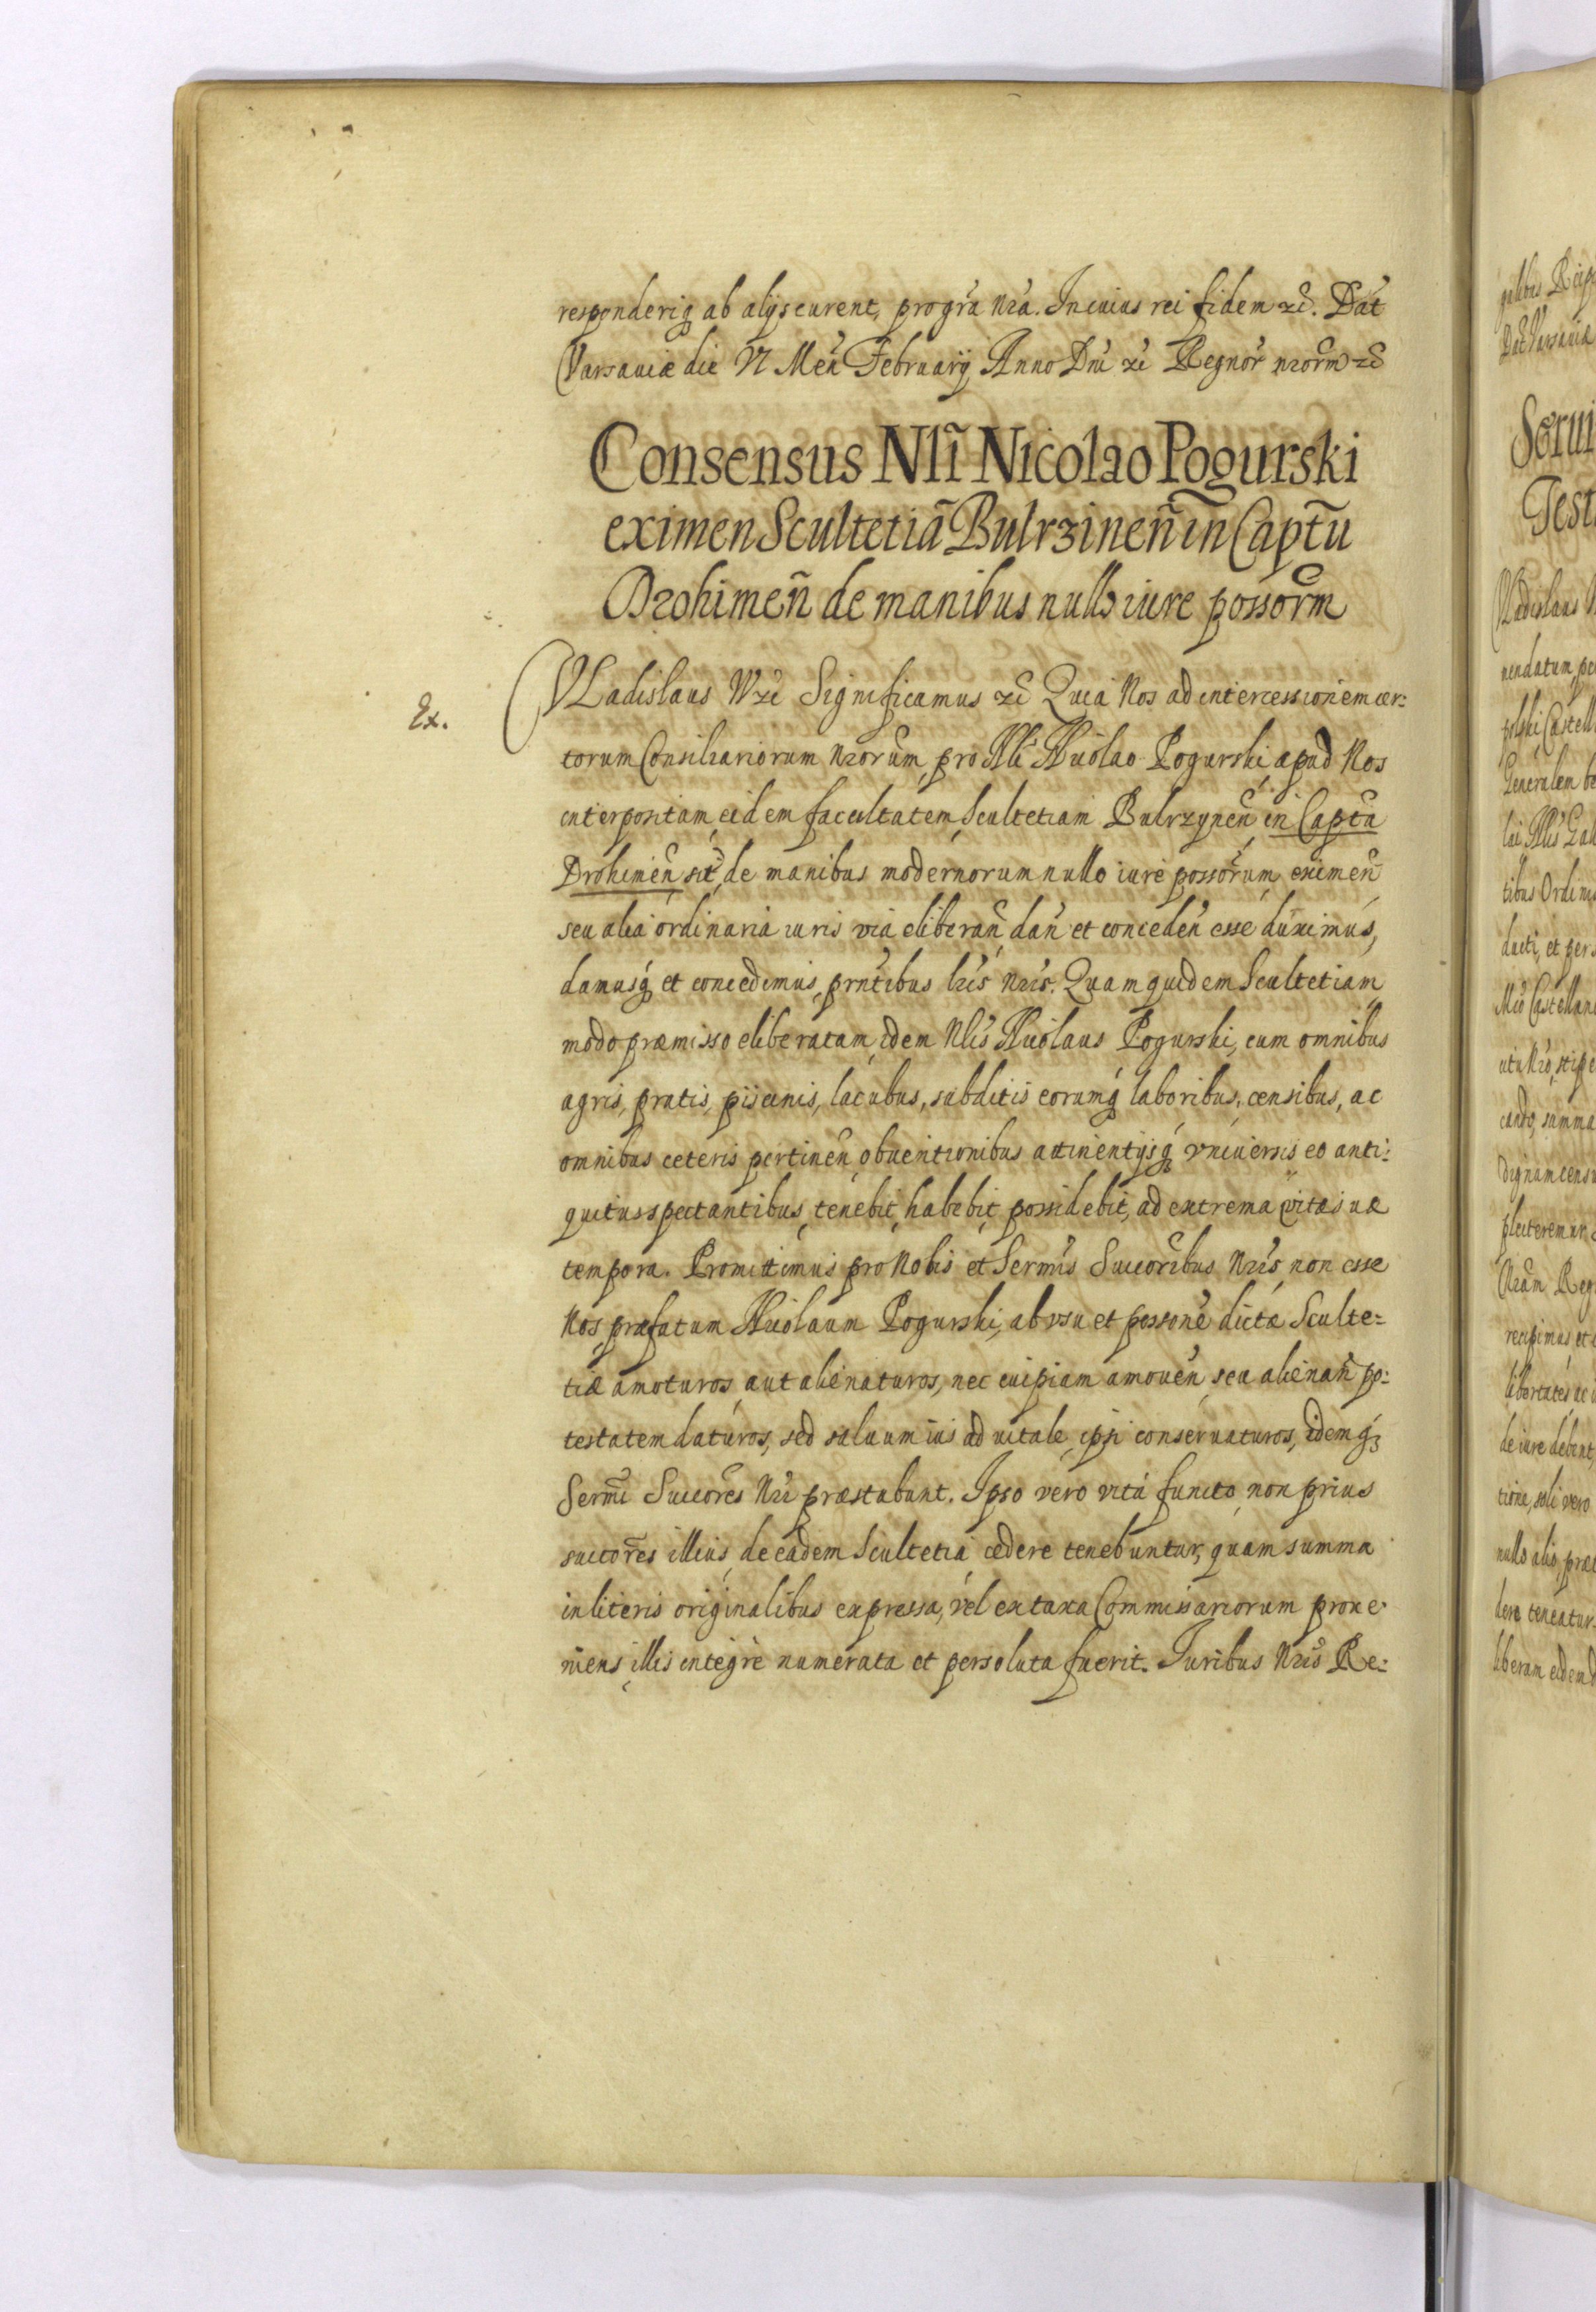 responderiq ab alijs curent, pro gra̅ nra̅. In cuius rei fidem etc̅. Dat̅
Varsaviæ die VI Men̅ Februarij, Anno Dni̅ etc̅ Regnor̅ nrorm̅ etc̅
Consensus Nli̅ Nicolao Pogurski
eximen Scultetia̅ Bulrzinen̅ in Captu̅
Drohimen̅ de manibus nullo iure possorm̅
Ex.
VLadislaus IV etc̅ Significamus etc̅ Quia Nos ad intercessionem cer:
torum Consiliariorum nrorum̅, pro Nli̅ Nicolao Pogurski, apud Nos
interpositam, eidem facultatem, Scultetiam Bulrzynen̅ in Captu̅
Drohimen̅ sit̅, de manibus modernorum nullo iure possorum̅, eximen̅
seu alia ordinaria iuris via eliberan̅, dan̅ et conceden̅ esse duximus,
damusq̨ et concedimus, prntibus̅ lris̅ nris̅. Quam quidem Scultetiam
modo præmisso eliberatam, idem Nlis̅ Nicolaus Pogurski, cum omnibus
agris, pratis, piscinis, lacubus, subditis eorumq̨ laboribus, censibus, ac
omnibus ceteris pertinen̅, obventionibus attinentijsq̨ vniversis eo anti:
quitus spectantibus, tenebit, habebit, possidebit, ad extrema vitæ suæ
tempora. Promittimus pro Nobis et Sermis̅ Succoribus̅ Nris̅, non esse
Nos, præfatum Nicolaum Pogurski, ab vsu et possone̅ dictæ Sculte=
tiæ amoturos, aut alienaturos, nec cuipiam amoven̅, seu alienan̅ po:
testatem daturos, sed salvum ius ad vitale, ipsi conservaturos, idemq̨
Sermi̅ Succores̅ Nri̅ præstabunt. Ipso vero vita functo, non prius
succores̅ illius, de eadem Scultetia cedere tenebuntur, quam summa
in literis originalibus expressa, vel ex taxa Commissariorum prove-
niens, illis integrè numerata et persoluta fuerit. Iuribus Nris̅ Re: